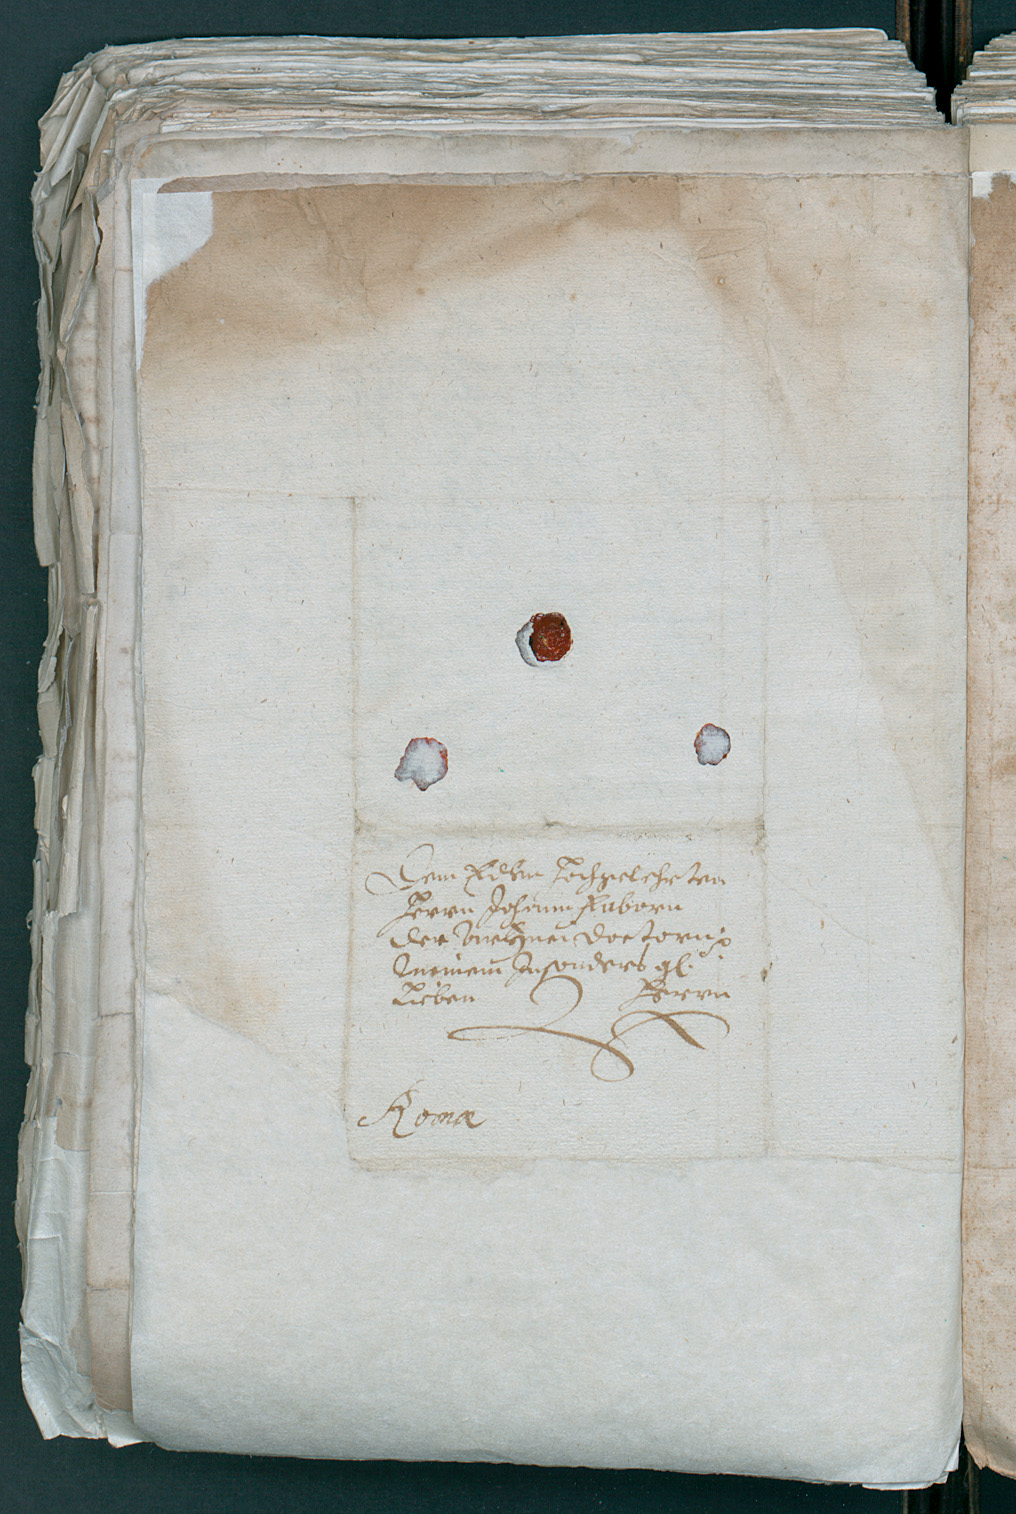 Dem Edlen Hochgelehrten
Herrn Johann Fabern
der Artznei Doctorn
Meinem Insonders gl.
Lieben Herrn
Romæ